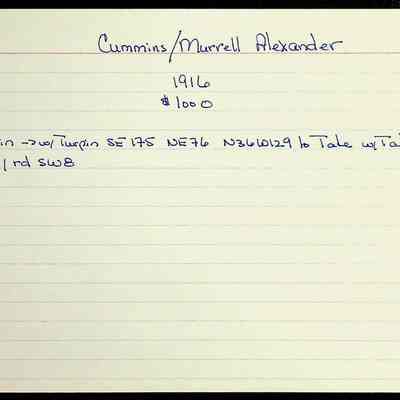 Cummins/Murrell Alexander
1916
$1000
in -> w/Turpin SE 175 NE76 N36W129 to Tate w/Ta
/ rd SW8